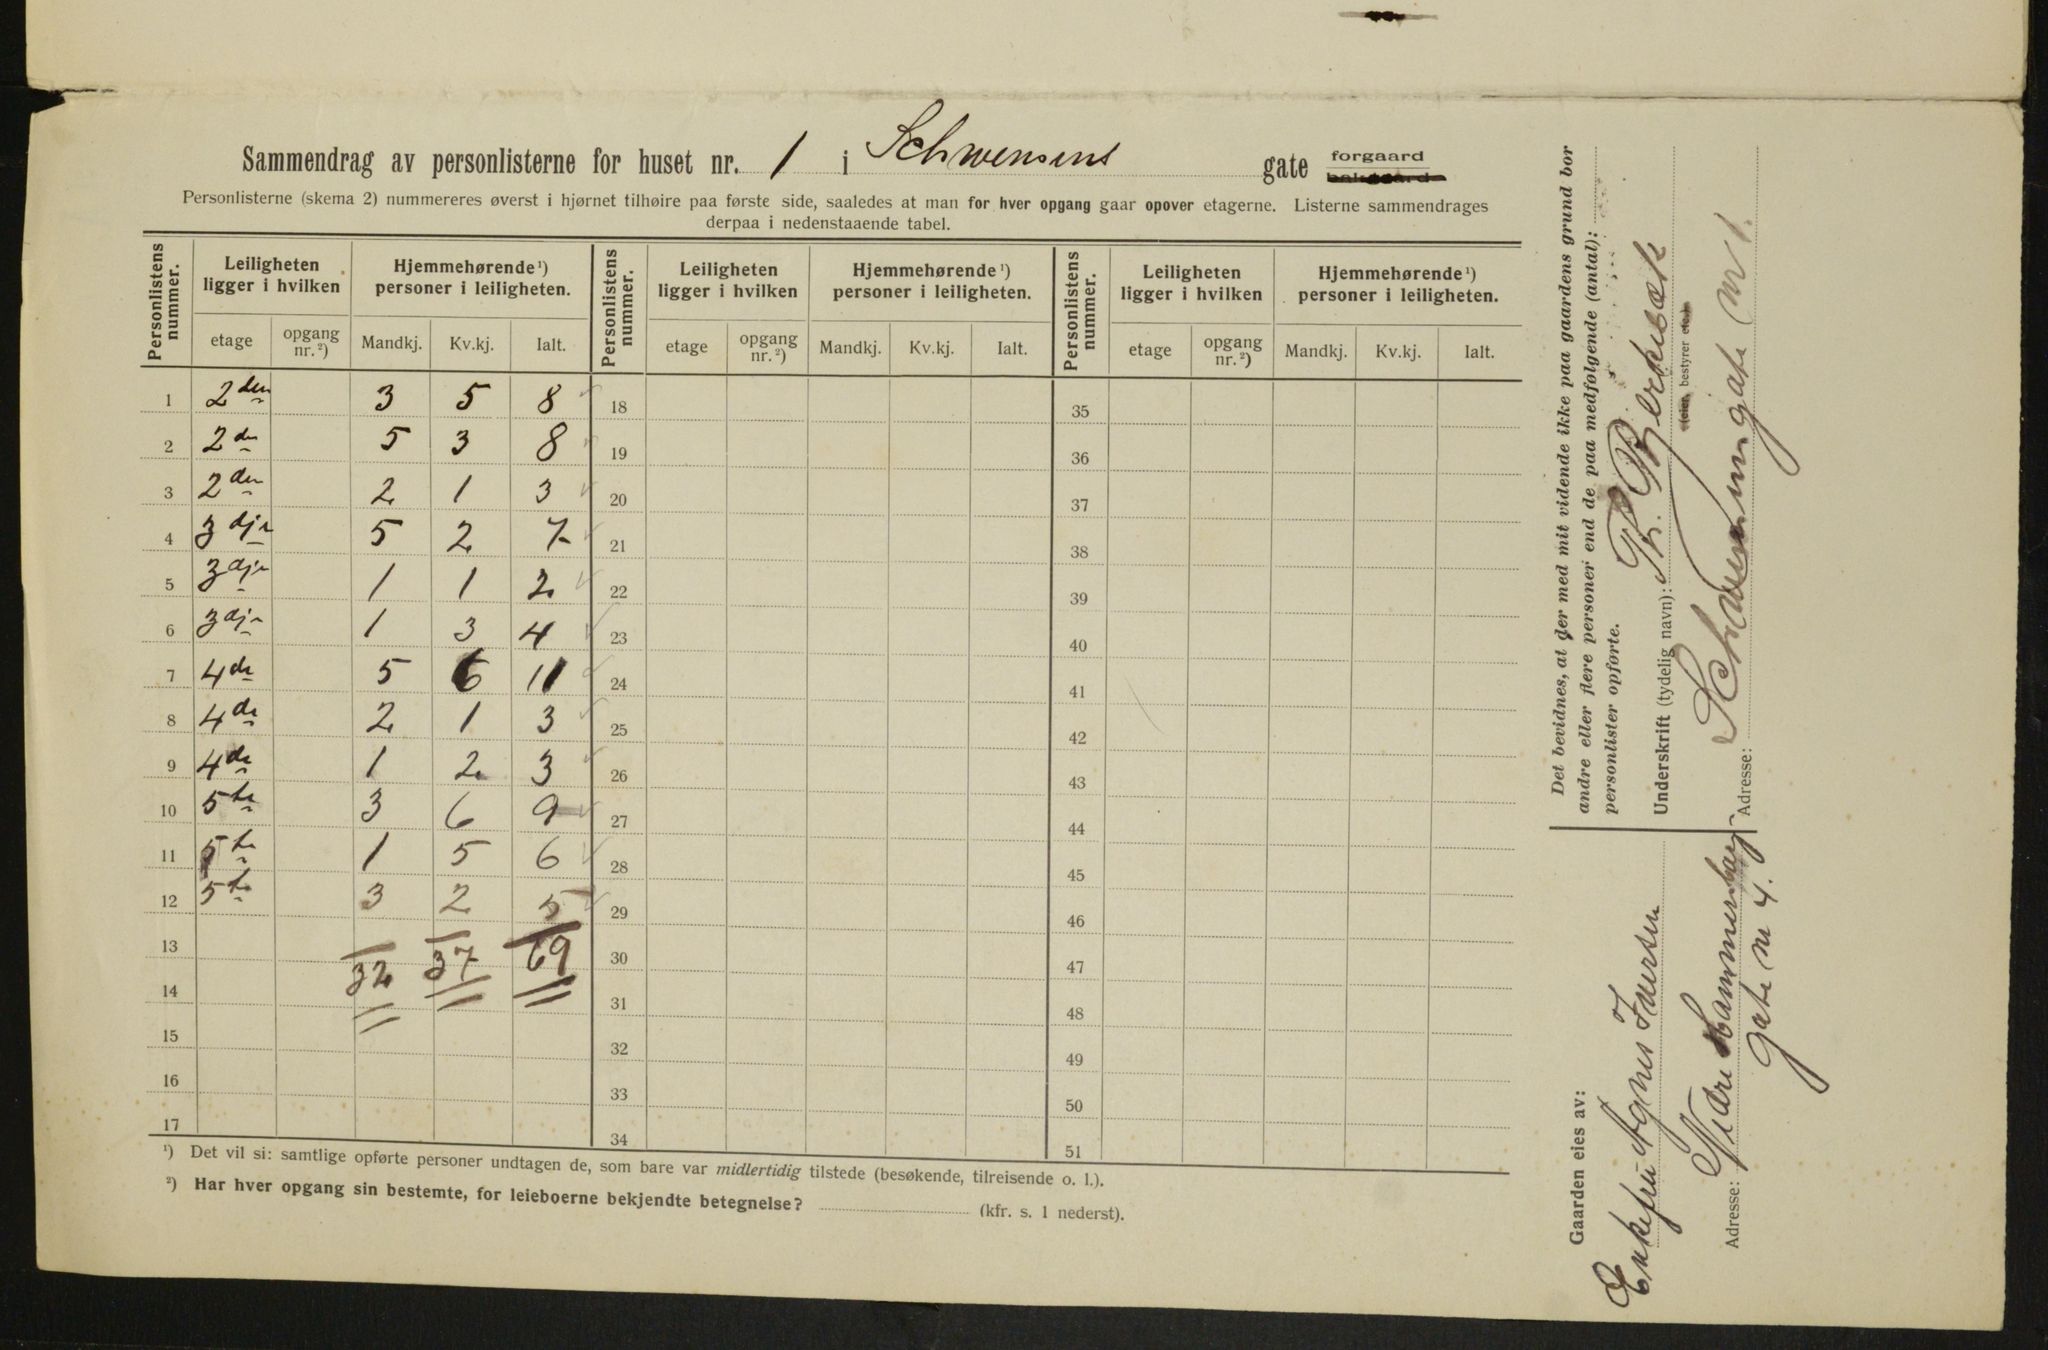 Sammendrag av personlisterne for huset nr. 1 i Schwensens gate forgaard bakgaard
Personlisterne (skema 2) nummereres øverst i hjørnet tilhøire paa første side, saaledes at man for hver opgang gaar opover etagerne. Listerne sammendrages
derpaa i nedenstaaende tabel.
Personlistens nummer. Leiligheten ligger i hvilken Hjemmehørende ¹) personer i leiligheten. Personlistens nummer. Leiligheten ligger i hvilken Hjemmehørende ¹) personer i leiligheten. Personlistens nummer. Leiligheten ligger i hvilken Hjemmehørende ¹) personer i leiligheten.
etage opgang nr. ²) Mandkj. Kv.kj. Ialt. etage opgang nr. ²) Mandkj. Kv.kj. Ialt. etage opgang nr. ²) Mandkj. Kv.kj. Ialt.
1 2den 3 5 8 18 35
2 2den 5 3 8 19 36
3 2den 2 1 3 20 37
4 3dje 5 2 7 21 38
5 3dje 1 1 2 22 39
6 3dje 1 3 4 23 40
7 4de 5 6 11 24 41
8 4de 2 1 3 25 42
9 4de 1 2 3 26 43
10 5te 3 6 9 27 44
11 5te 1 5 6 28 45
12 5te 3 2 5 29 46
13 32 37 69 30 47
14 31 48
15 32 49
16 33 50
17 34 51
¹) Det vil si: samtlige opførte personer undtagen de, som bare var midlertidig tilstede (besøkende, tilreisende o. l.).
²) Har hver opgang sin bestemte, for leieboerne bekjendte betegnelse? (kfr. s. 1 nederst).
Det bevidnes, at der med mit vidende ikke paa gaardens grund bor
andre eller flere personer end de paa medfølgende (antal):
personlister opførte.
Underskrift (tydelig navn): Th. Bjerkebæk
(eier, bestyrer etc.)
Adresse: Schwensensgate nr 1.
Gaarden eies av:
Enkefru Agnes Iversen
Adresse: Nedre Hammersborg
gate nr 4.